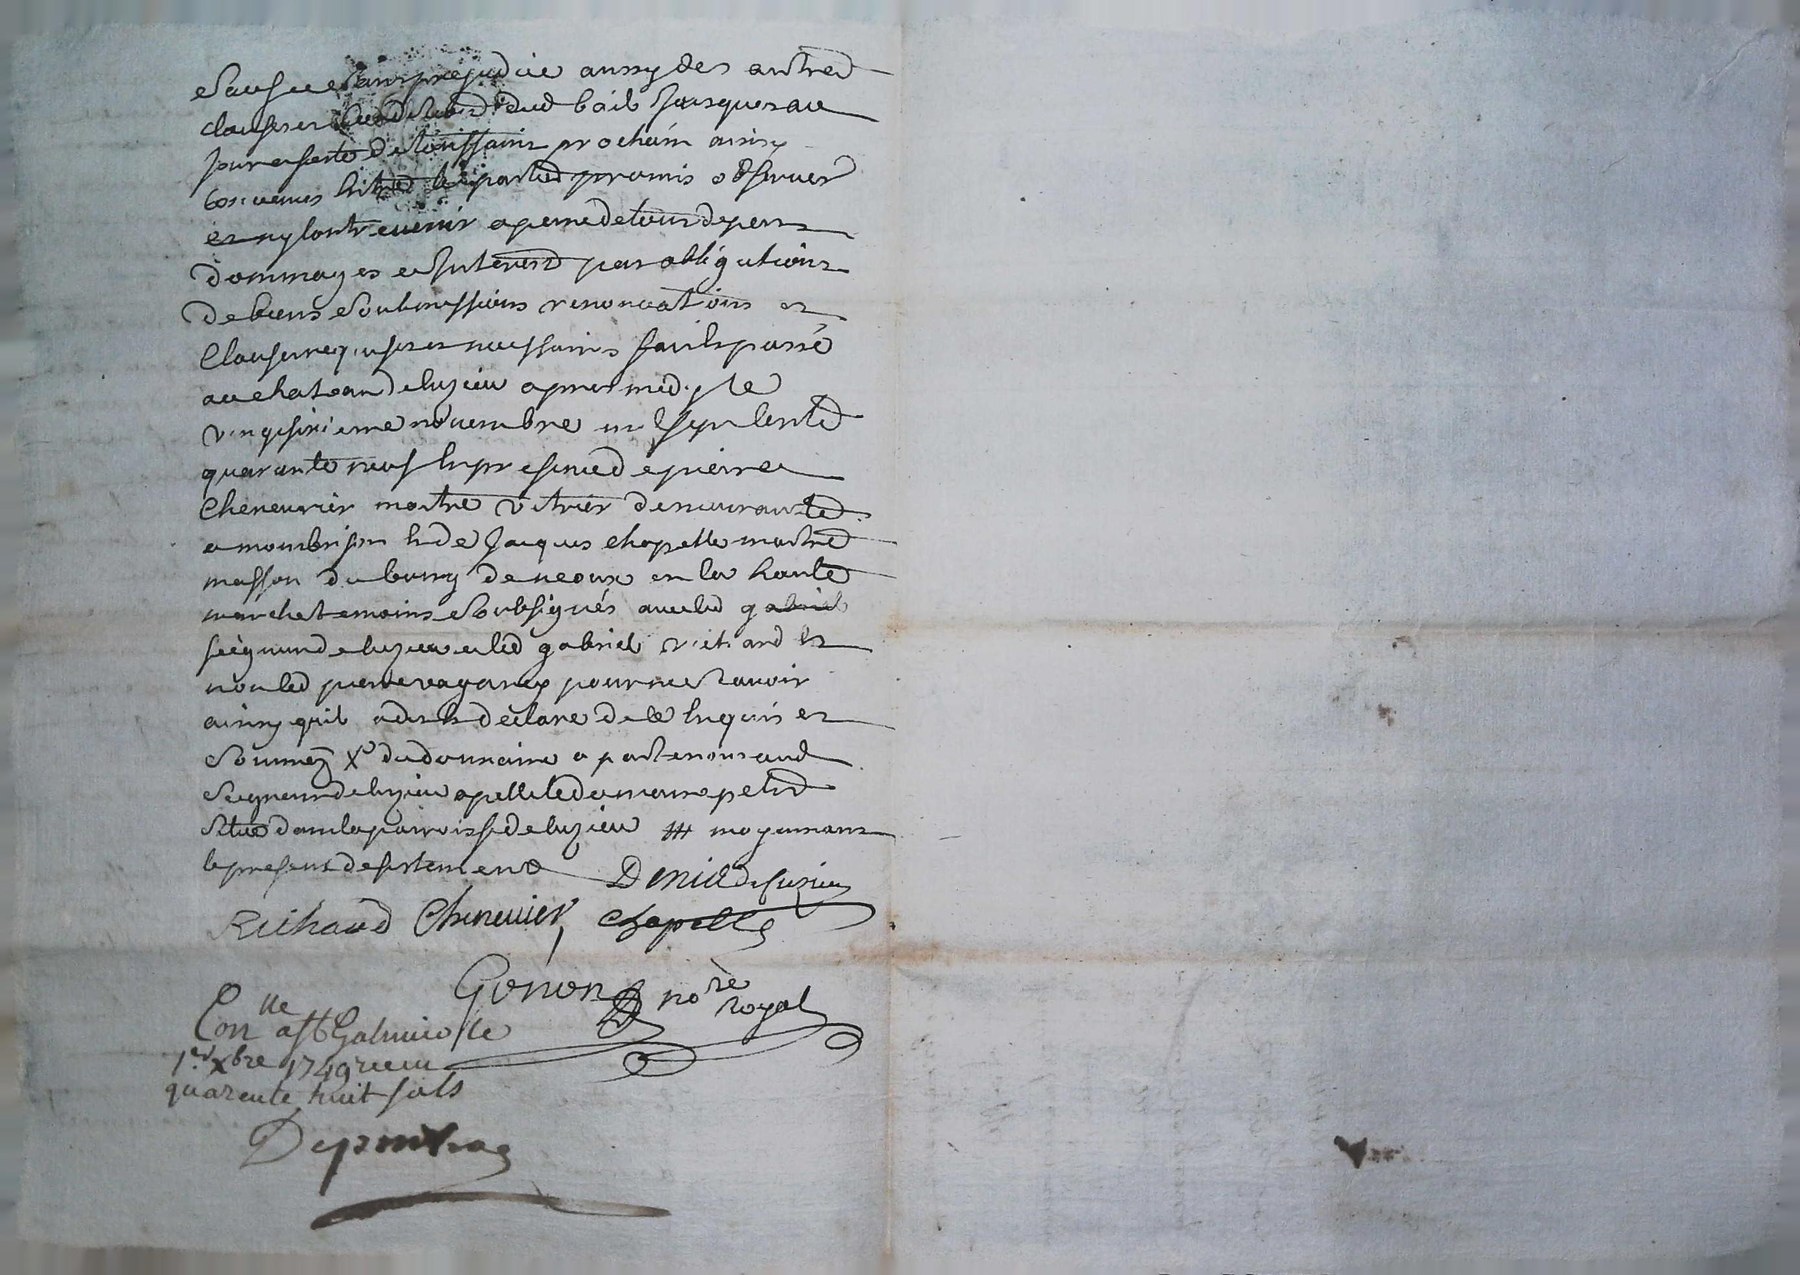 et sans prejudice aussy des autres
clauses et dud bail jusques au
jour et feste de toussaint prochain ainsy
convenus entre les parties promis observer
et ny contrevenir a peine de tous depens
dommages et interests par obligations
de biens soubmissions renonciations et
clauses requises et necessaires fait et passé
au chateau de luzieu apres midy le
vingt sixieme novembre mil sept cents
quarante neuf en presence de pierre
chenevrier maitre vitrier demeurant
a montbrison et de Jacques chapelle maitre
masson du bourg de neoux en la haute
marche temoins soubsignés avec led
seigneur de luzieu et led gabriel richard et
non led pierre pour ne scavoir
ainsy quil a dit et declaré de ce enquis et
sommé X du domaine apartenant aud
seigneur de luzieu apellé le domaine petit
situé dans la parroisse de luzieu # moyennant
le present desistement Denis de Luzieu
Richard Chenevier Chapelle
Gonon nore royal
Conlle a st Galmier le
1er xbre 1749 recu
quarente huit sols